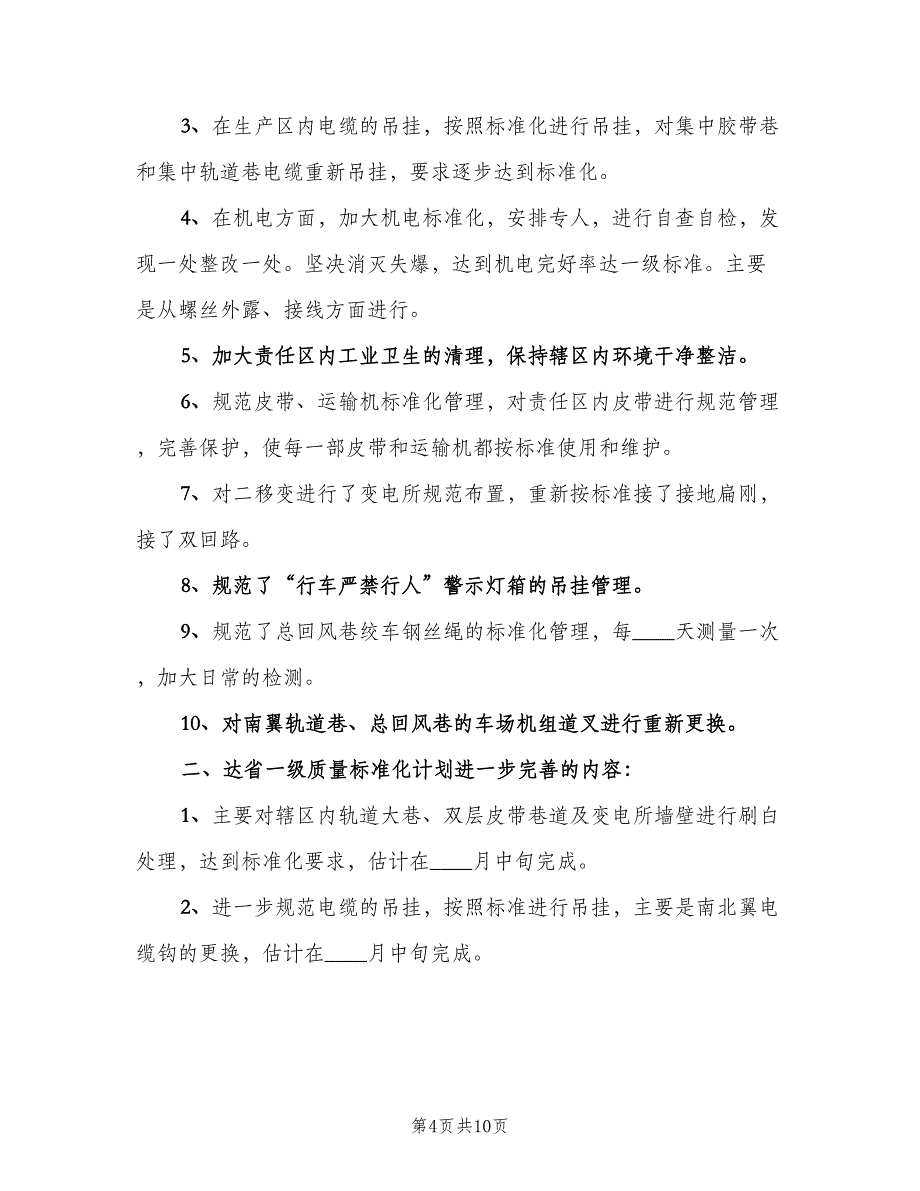 3、在生产区内电缆的吊挂，按照标准化进行吊挂，对集中胶带巷
和集中轨道巷电缆重新吊挂，要求逐步达到标准化。
4、在机电方面，加大机电标准化，安排专人，进行自查自检，发
现一处整改一处。坚决消灭失爆，达到机电完好率达一级标准。主要
是从螺丝外露、接线方面进行。
5、加大责任区内工业卫生的清理，保持辖区内环境干净整洁。
6、规范皮带、运输机标准化管理，对责任区内皮带进行规范管理
，完善保护，使每一部皮带和运输机都按标准使用和维护。
7、对二移变进行了变电所规范布置，重新按标准接了接地扁刚，
接了双回路。
8、规范了“行车严禁行人”警示灯箱的吊挂管理。
9、规范了总回风巷绞车钢丝绳的标准化管理，每____天测量一次
，加大日常的检测。
10、对南翼轨道巷、总回风巷的车场机组道叉进行重新更换。
二、达省一级质量标准化计划进一步完善的内容：
1、主要对辖区内轨道大巷、双层皮带巷道及变电所墙壁进行刷白
处理，达到标准化要求，估计在____月中旬完成。
2、进一步规范电缆的吊挂，按照标准进行吊挂，主要是南北翼电
缆钩的更换，估计在____月中旬完成。
第4页共10页